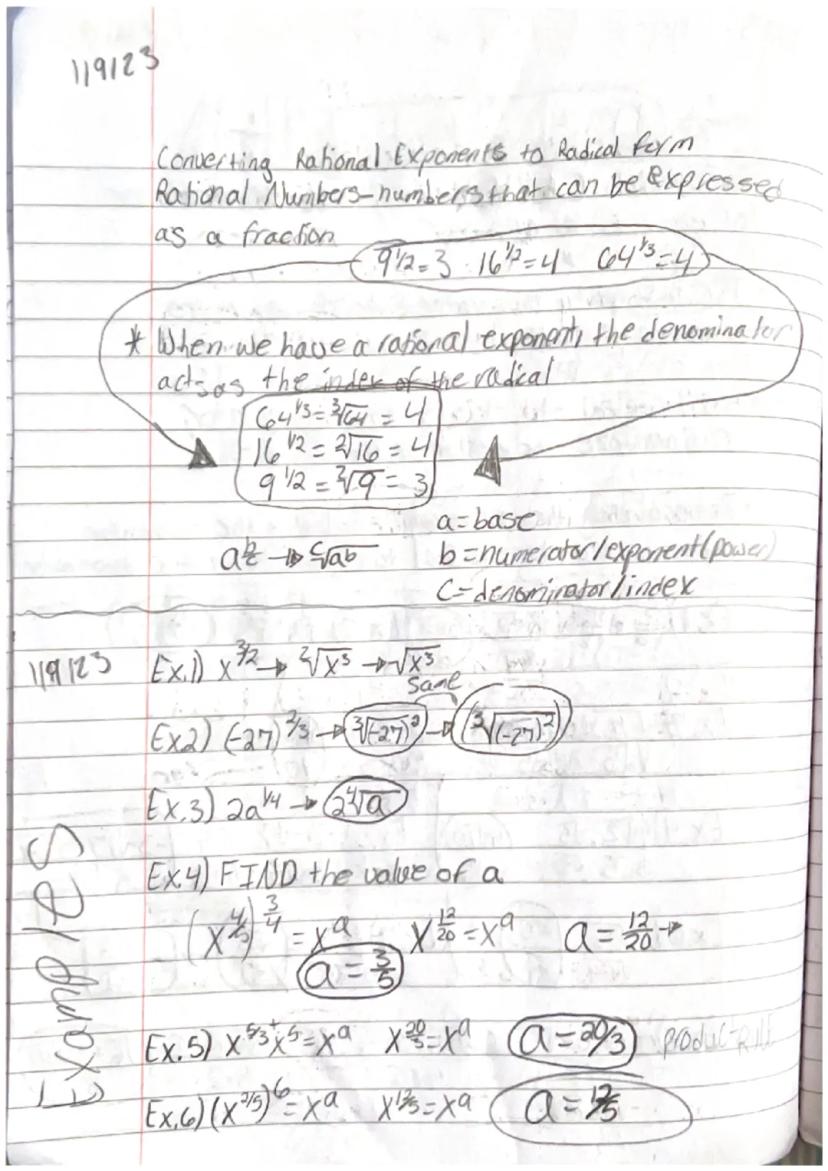 119123
Converting Rational Exponents to Radical form
Rational Numbers-numbers that can be expressed
as a fraction
9^1/2=3 16^1/2=4 64^1/3=4
* When we have a rational exponent, the denominator
acts as the index of the radical
64^1/3=∛64=4
16^1/2=²√16=4
9^1/2=²√9=3
a^b/c → ᶜ√ab
a=base
b=numerator/exponent(power)
c=denominator/index
119123
Ex.1) x^3/2 → ²√x³ → √x³
Same
Ex2) (-27)^2/3 → ³√(-27)² → (³√(-27)²)
Ex.3) 2a^1/4 → 2⁴√a
Examples
Ex.4) FIND the value of a
(x^4/5)^3/4 = x^a x^12/20 = x^a a = 12/20 →
a = 3/5
Ex.5) x^5/3+x^5=x^a x^20/3=x^a a=20/3 product rule
Ex.6) (x^2/5)^6=x^a x^12/5=x^a a=12/5